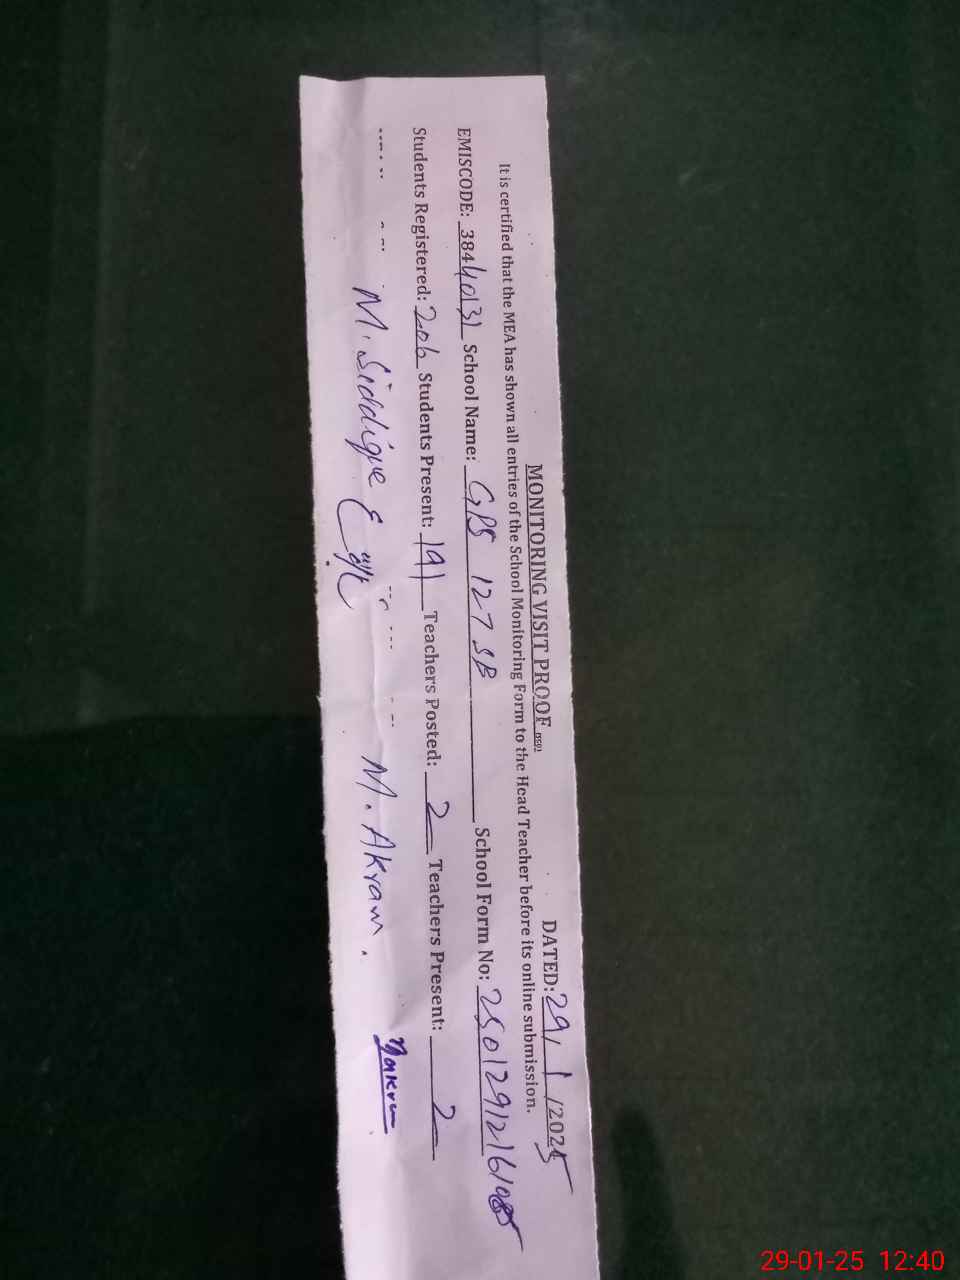 MONITORING VISIT PROOF DATED: 29/1/2025
It is certified that the MEA has shown all entries of the School Monitoring Form to the Head Teacher before its online submission.
EMISCODE: 38440131 School Name: GPS 127 SB School Form No:
Students Registered: 206 Students Present: 191 Teachers Posted: 2 Teachers Present: 2
M. Siddique M. Akram.
29-01-25 12:40